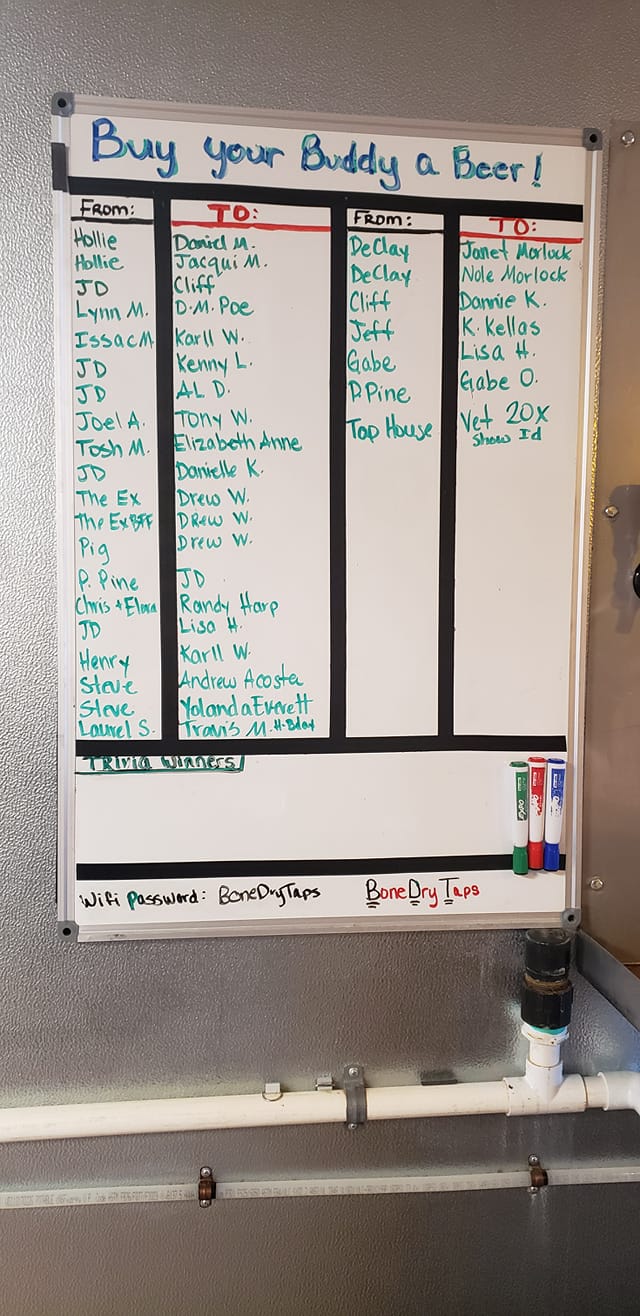 Buy your Buddy a Beer!
From: TO:
Hollie Daniel M.
Hollie Jacqui M.
JD Cliff
Lynn M. D.M. Poe
Issac M. Karll W.
JD Kenny L.
JD AL D.
Joel A. Tony W.
Tosh M. Elizabeth Anne
JD Danielle K.
The Ex Drew W.
The Ex BFF DRew W.
Pig Drew W.
P. Pine JD
Chris + Elora Randy Harp
JD Lisa H.
Henry Karll W.
Steve Andrew Acosta
Steve Yolanda Everett
Laurel S. Travis M. H-Bday
From: TO:
DeClay Janet Morlock
DeClay Nole Morlock
Cliff Dannie K.
Jeff K. Kellas
Gabe Lisa H.
P. Pine Gabe O.
Tap House Vet 20x
Show Id
Trivia Winners
Wifi Password: BoneDryTaps BoneDryTaps